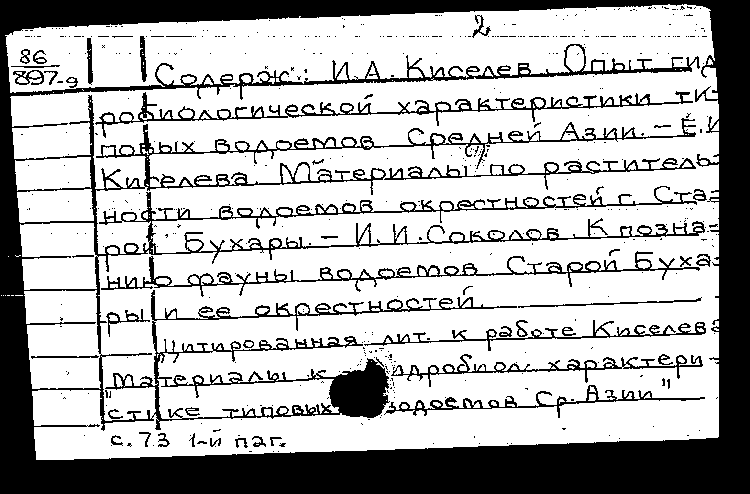 2
86
897-д
Содерж.: И.А. Киселев. Опыт гид
робиологической характеристики ти-
повых водоемов Средней Азии. – Е.И
Киселева. Материалы по раститель-
ности водоемов окрестностей г. Ста=
рой Бухары. – И.И. Соколов. К позна=
нию фауны водоемов Старой Буха=
ры и ее окрестностей.
Цитированная лит. к работе Киселева
"Материалы к гидробиол. характери-
стике типовых водоемов Ср. Азии"
с. 73 1-й паг.